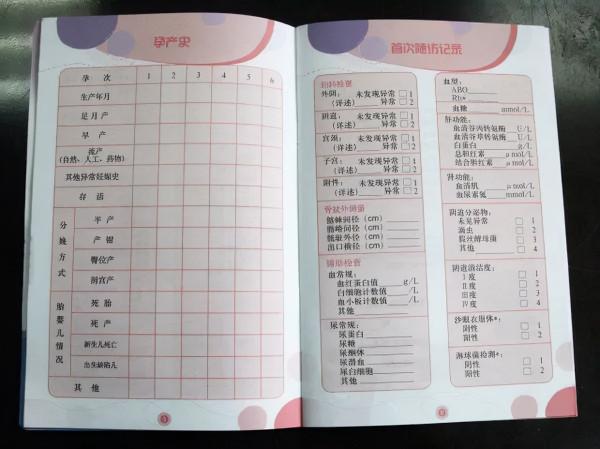 孕产史
孕 次 1 2 3 4 5 6
生产年月
足月产
早 产
流产
(自然、人工、药物)
其他异常妊娠史
存 活
分娩方式
平 产
产 钳
臀位产
剖宫产
胎婴儿情况
死 胎
死 产
新生儿死亡
出生缺陷儿
其 他
首次随访记录
妇科检查
外阴: 未发现异常 □ 1
(详述) 异常 □ 2
阴道: 未发现异常 □ 1
(详述) 异常 □ 2
宫颈: 未发现异常 □ 1
(详述) 异常 □ 2
子宫: 未发现异常 □ 1
(详述) 异常 □ 2
附件: 未发现异常 □ 1
(详述) 异常 □ 2
骨盆外测量
髂棘间径(cm)
髂嵴间径(cm)
骶耻外径(cm)
出口横径(cm)
辅助检查
血常规:
血红蛋白值 g/L
白细胞计数值 /L
血小板计数值 /L
其他
尿常规:
尿蛋白
尿糖
尿酮体
尿潜血
尿白细胞
其他
血型:
ABO
Rh*
血糖 mmol/L
肝功能:
血清谷丙转氨酶 U/L
血清谷草转氨酶 U/L
白蛋白 g/L
总胆红素 μmol/L
结合胆红素 μmol/L
肾功能:
血清肌 μmol/L
血尿素氮 mmol/L
阴道分泌物:
未见异常 □ 1
滴虫 □ 2
假丝酵母菌 □ 3
其他 □ 4
阴道清洁度:
Ⅰ度 □ 1
Ⅱ度 □ 2
Ⅲ度 □ 3
Ⅳ度 □ 4
沙眼衣原体*:
阴性 □ 1
阳性 □ 2
淋球菌检测*:
阴性 □ 1
阳性 □ 2